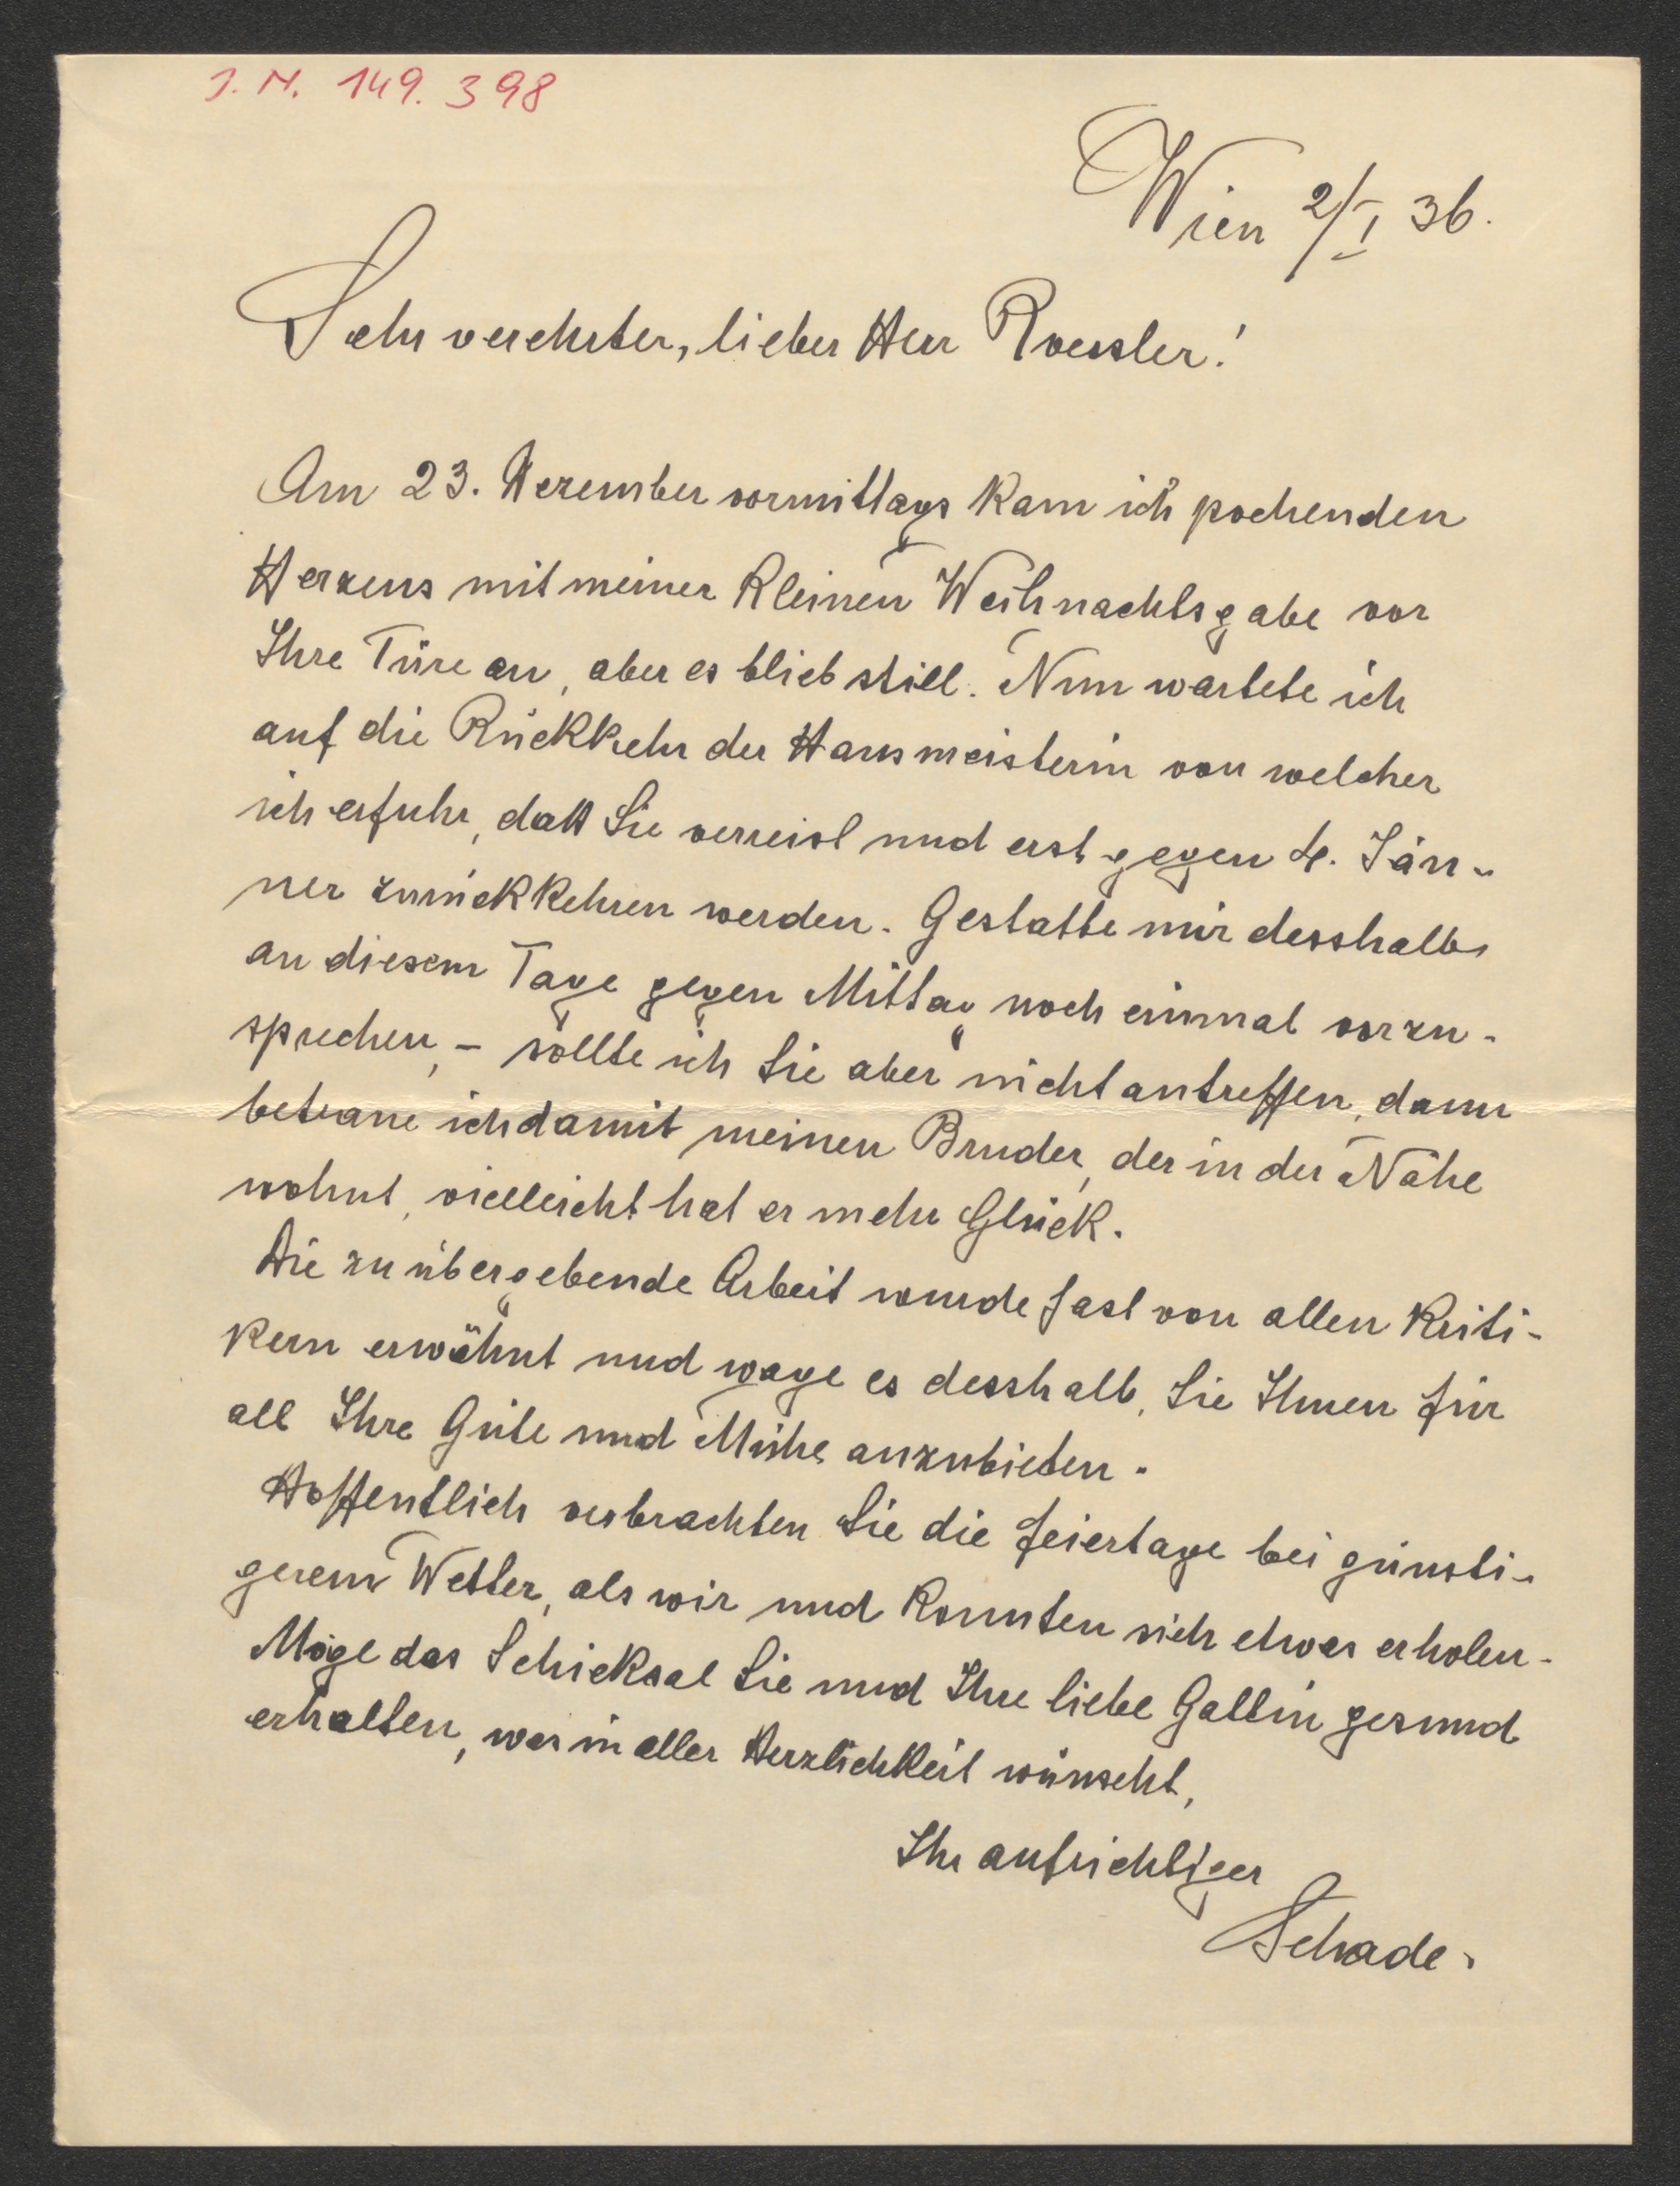 J. N. 149.398
Wien 2/I 36.
Sehr verehrter, lieber Herr Roessler!
Am 23. Dezember vormittags kam ich pochenden
Herzens mit meiner kleinen Weihnachtsgabe vor
Ihre Türe an, aber es blieb still. Nun wartete ich
auf die Rückkehr der Hausmeisterin von welcher
ich erfuhr, daß Sie verreist und erst gegen 4. Jän-
ner zurückkehren werden. Gestatte mir desshalb
an diesem Tage gegen Mittag noch einmal vorzu-
sprechen, - sollte ich Sie aber nicht antreffen, dann
betraue ich damit meinen Bruder, der in der Nähe
wohnt, vielleicht hat er mehr Glück.
Die zu übergebende Arbeit wurde fast von allen Kriti-
kern erwähnt und wage es desshalb, Sie Ihnen für
all Ihre Güte und Mühe anzubieten.
Hoffentlich verbrachten Sie die Feiertage bei günsti-
gerem Wetter, als wir und konnten sich etwas erholen.
Möge das Schicksal Sie und Ihre liebe Gattin gesund
erhalten, was in aller Herzlichkeit wünscht,
Ihr aufrichtiger
Schade.